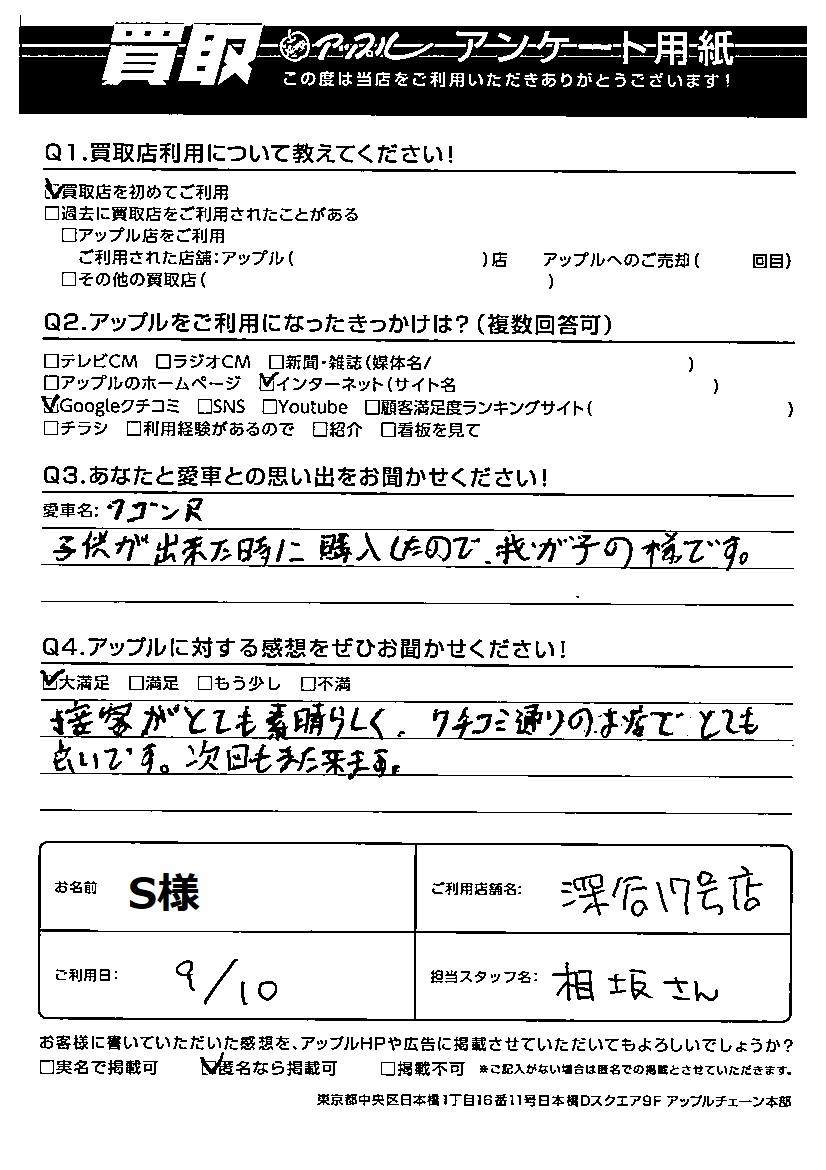 買取 アップル アンケート用紙
この度は当店をご利用いただきありがとうございます!
Q1.買取店利用について教えてください!
☑買取店を初めてご利用
□過去に買取店をご利用されたことがある
□アップル店をご利用
ご利用された店舗:アップル( )店 アップルへのご売却( 回目)
□その他の買取店( )
Q2.アップルをご利用になったきっかけは?(複数回答可)
□テレビCM □ラジオCM □新聞・雑誌(媒体名/ )
□アップルのホームページ ☑インターネット(サイト名 )
☑Googleクチコミ □SNS □Youtube □顧客満足度ランキングサイト( )
□チラシ □利用経験があるので □紹介 □看板を見て
Q3.あなたと愛車との思い出をお聞かせください!
愛車名: ワゴンR
子供が出来た時に購入したので、我が子の様です。
Q4.アップルに対する感想をぜひお聞かせください!
☑大満足 □満足 □もう少し □不満
接客がとても素晴らしく、クチコミ通りのお店でとても
良いです。次回もまた来ます。
お名前 S様 ご利用店舗名: 深谷17号店
ご利用日: 9/10 担当スタッフ名: 相坂さん
お客様に書いていただいた感想を、アップルHPや広告に掲載させていただいてもよろしいでしょうか?
□実名で掲載可 ☑匿名なら掲載可 □掲載不可 ※ご記入がない場合は匿名での掲載とさせていただきます。
東京都中央区日本橋1丁目16番11号日本橋Dスクエア9F アップルチェーン本部